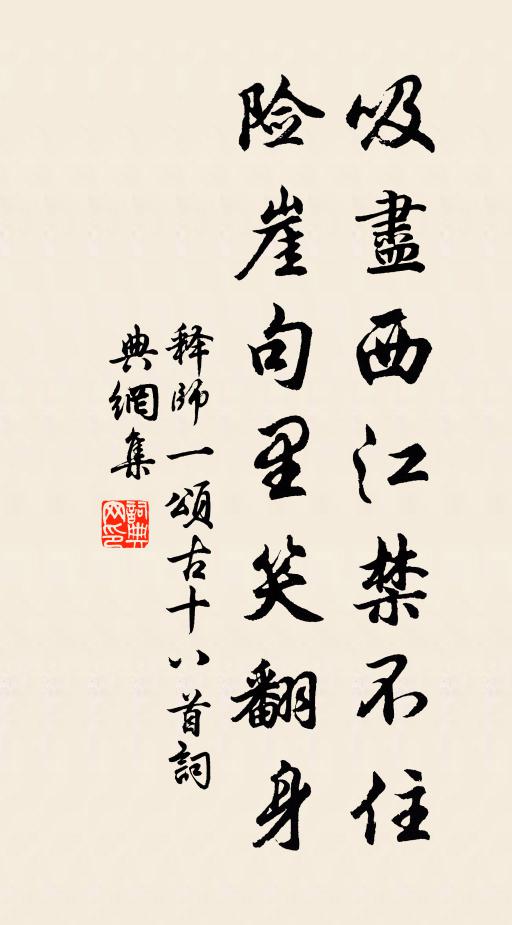 吸盡西江禁不住
险崖句里笑翻身
释師一頌古十八首詞
典網集
詞典网印